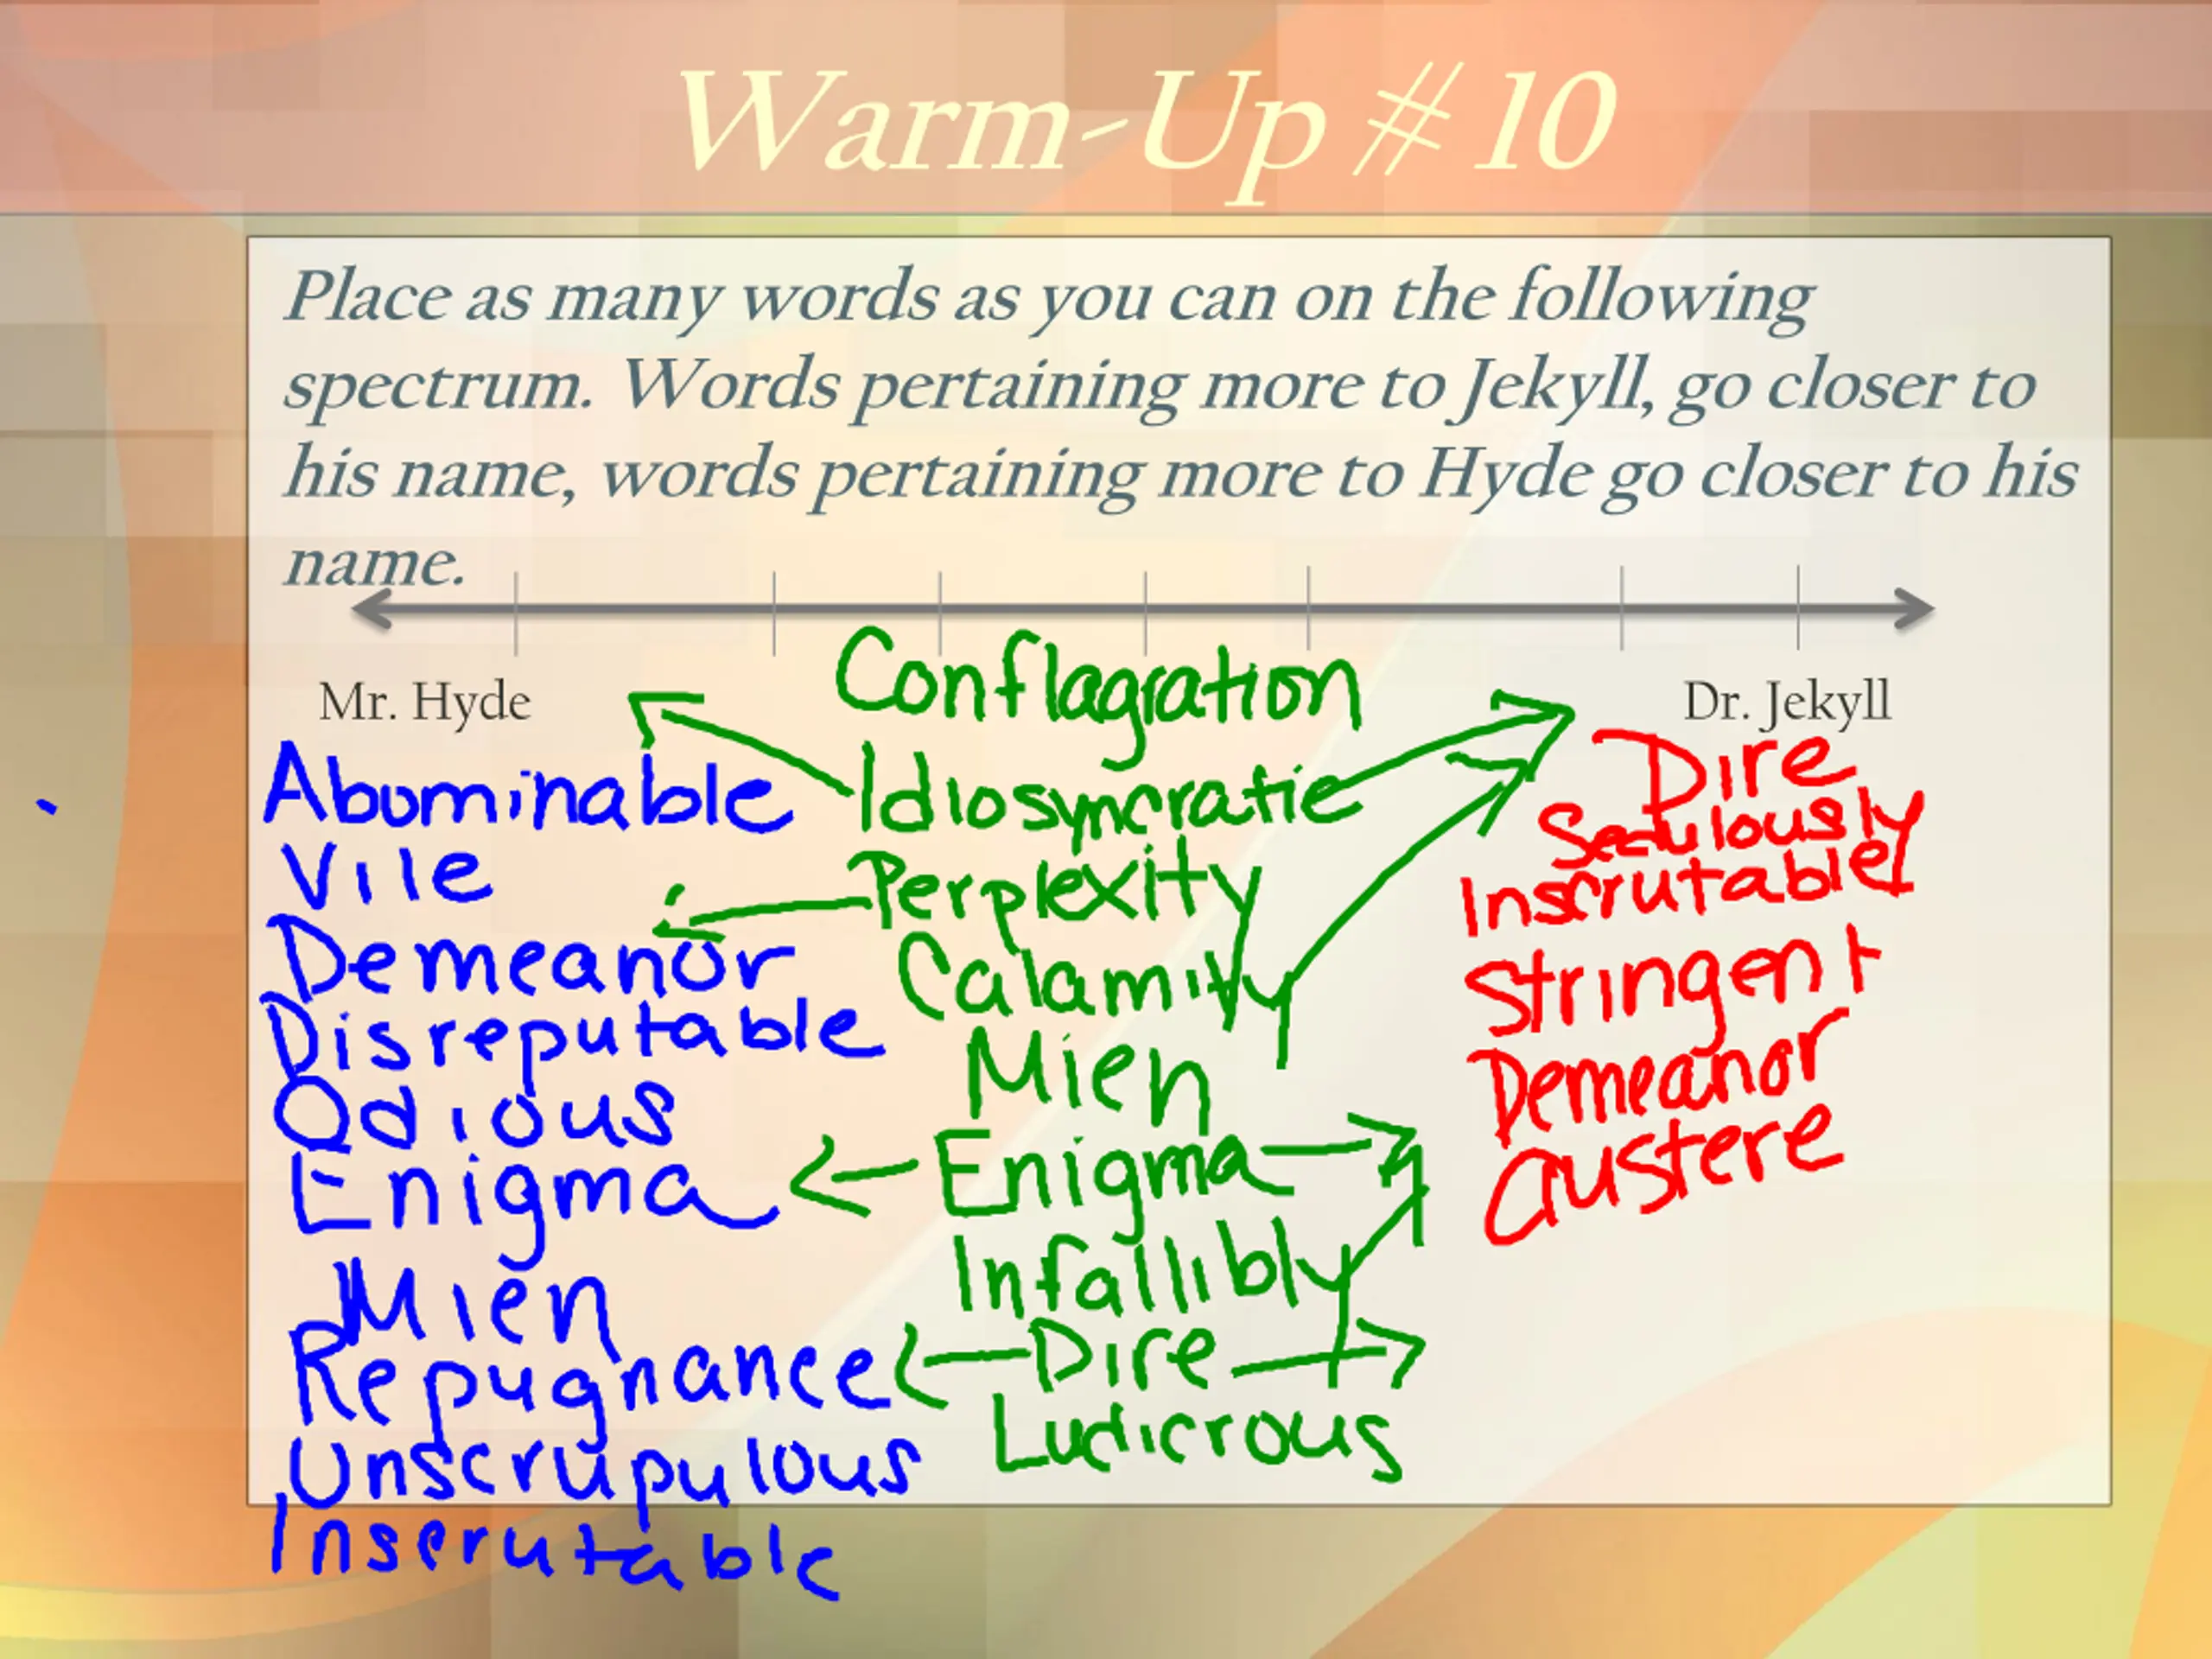 Warm-Up # 10
Place as many words as you can on the following
spectrum. Words pertaining more to Jekyll, go closer to
his name, words pertaining more to Hyde go closer to his
name.
Mr. Hyde
Abominable
Vile
Demeanor
Disreputable
Odious
Enigma
Mien
Repugnance
Unscrupulous
Inscrutable
Conflagration
Idiosyncratic
Perplexity
Calamity
Mien
Enigma
Infallibly
Dire
Ludicrous
Dr. Jekyll
Dire
Sedulously
Inscrutable
Stringent
Demeanor
Austere